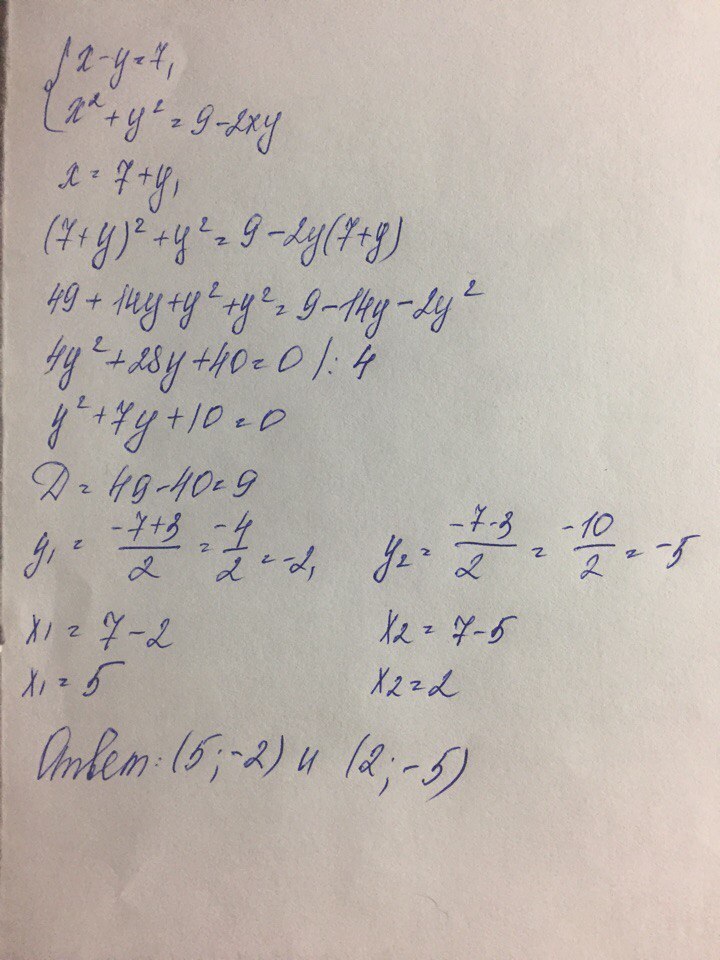 { x-y=7,
x²+y²=9-2xy
x=7+y,
(7+y)²+y²=9-2y(7+y)
49+14y+y²+y²=9-14y-2y²
4y²+28y+40=0 /:4
y²+7y+10=0
D=49-40=9
y₁ = (-7+3)/2 = -4/2 = -2,   y₂ = (-7-3)/2 = -10/2 = -5
x₁=7-2   x₂=7-5
x₁=5   x₂=2
Ответ: (5;-2) и (2;-5)